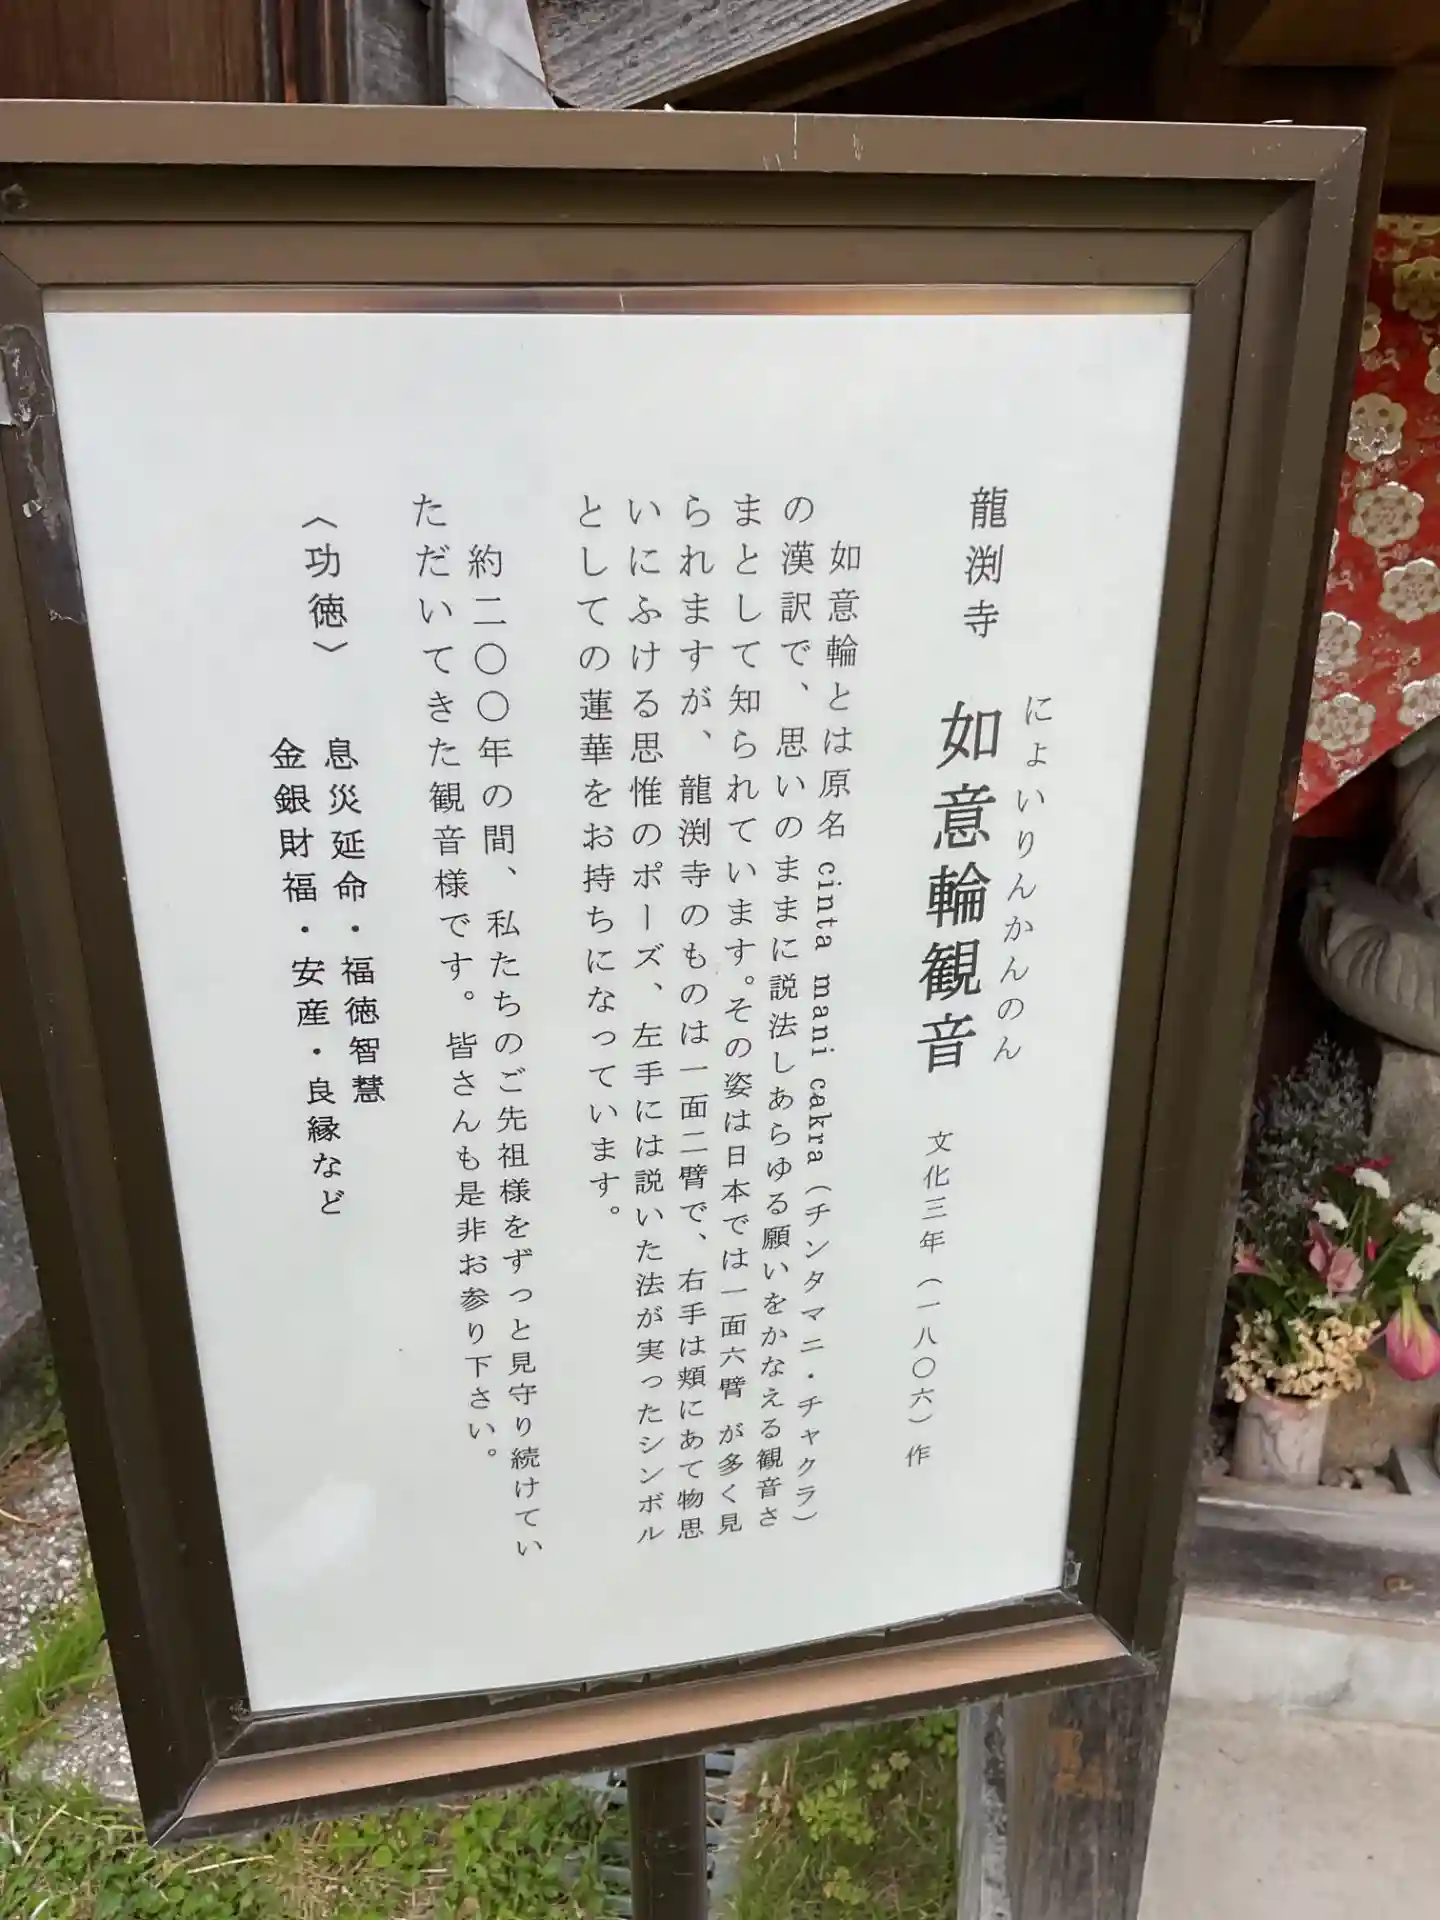 龍渕寺 如意輪観音 文化三年（一八〇六）作
にょいりんかんのん
如意輪とは原名 cinta mani cakra（チンタマニ・チャクラ）
の漢訳で、思いのままに説法しあらゆる願いをかなえる観音さ
まとして知られています。その姿は日本では一面六臂 が多く見
られますが、龍渕寺のものは一面二臂で、右手は頬にあて物思
いにふける思惟のポーズ、左手には説いた法が実ったシンボル
としての蓮華をお持ちになっています。
約二〇〇年の間、私たちのご先祖様をずっと見守り続けてい
ただいてきた観音様です。皆さんも是非お参り下さい。
〈功徳〉 息災延命・福徳智慧
金銀財福・安産・良縁など